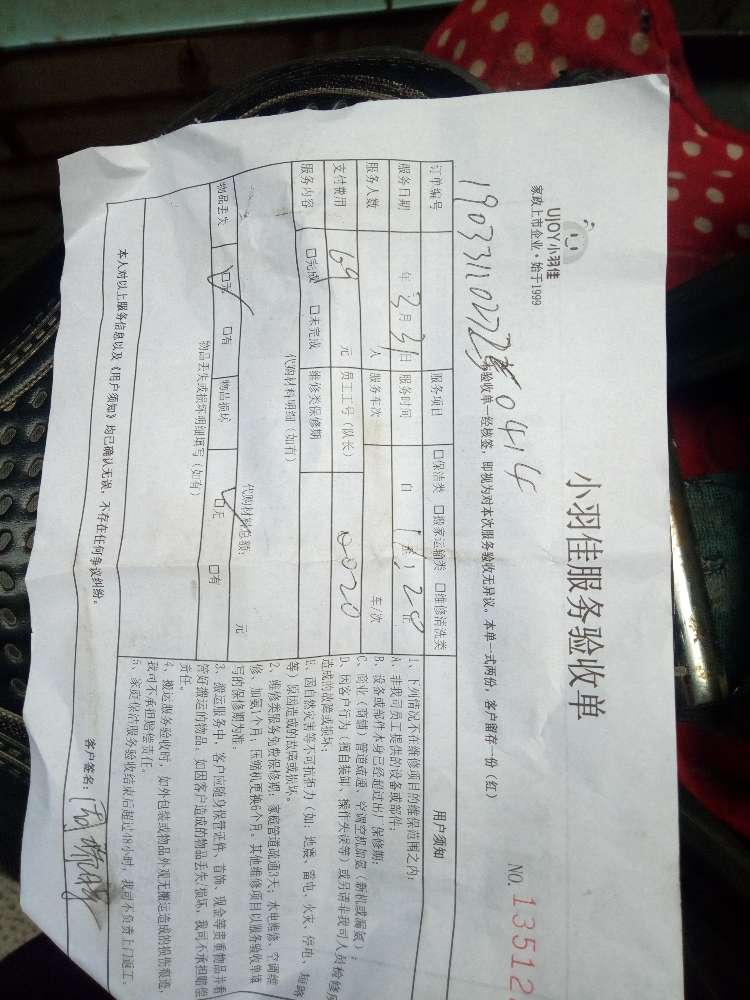 UJOY小羽佳
家政上市企业·始于1999
小羽佳服务验收单
NO. 13512
本验收单一经核签，即视为对本次服务验收无异议。本单一式两份，客户留存一份（红）
订单编号
服务项目 □保洁类 □搬家运输类 □维修清洗类
服务日期 年 3月 31日 服务时间 自 至
服务人数 人 服务车次 车/次
支付费用 169 元 员工工号（队长） 0020
服务内容 □完成 □未完成 维修类保修期
代购材料明细（如有）
代购材料总额： 元
物品丢失 □无 □有 物品损坏 □无 □有
物品丢失或损坏明细填写（如有）
用户须知
1、下列情况不在维修项目的维保范围之内：
A、非我司员工提供的设备或部件；
B、设备或部件本身已经超过出厂保修期；
C、商业（商铺）管道疏通、空调空机加氨（新机或漏氨）；
D、因客户行为（擅自装卸、操作失误等）或另请非我司人员检修
造成的故障或损坏；
E、因自然灾害等不可抗拒力（如：地震、雷电、火灾、停电、短路
等）原因造成的故障或损坏。
2、维修类服务免费保修期：家庭管道疏通3天；水电维修、空调维
修、加氨1个月，压缩机更换6个月。其他维修项目以服务验收单填
写的保修期为准。
3、搬运服务中，客户应随身保管证件、首饰、现金等贵重物品并看
管好搬运的物品。如因客户造成的物品丢失/损坏，我司不承担赔偿
责任。
4、搬运服务验收时，如外包装或物品外观无搬运造成的损伤痕迹，
我司不承担赔偿责任。
5、家庭保洁服务验收结束后超过48小时，我司不负责上门返工。
本人对以上服务信息以及《用户须知》均已确认无误，不存在任何争议纠纷。
客户签名：